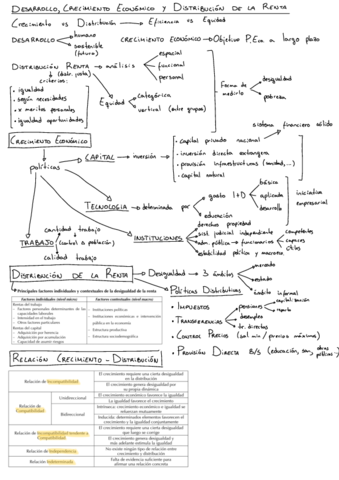 DESARROLLO, CRECIMIENTO ECONÓMICO Y DISTRIBUCIÓN DE LA RENTA
Crecimiento vs Distribución → Eficiencia vs Equidad
DESARROLLO
humano
sostenible
(futuro)
CRECIMIENTO ECONÓMICO → Objetivo P.Eca a largo plazo
DISTRIBUCIÓN RENTA → análisis
espacial
funcional
personal
(distr. justa)
criterios:
• igualdad
• según necesidades
• x méritos personales
• igualdad oportunidades
Equidad
categórica
vertical (entre grupos)
Forma de medirlo
desigualdad
pobreza
CRECIMIENTO ECONÓMICO
políticas
sistema financiero sólido
CAPITAL → inversión
• capital privado nacional
• inversión directa extranjera
• provisión infraestructuras (sanidad,...)
• capital natural
TECNOLOGÍA → determinada por
gasto I+D
básica
aplicada
desarrollo
iniciativa empresarial
educación
TRABAJO (control a población)
cantidad trabajo
calidad trabajo
INSTITUCIONES
derechos propiedad
sist. judicial independiente
adm. pública → funcionarios
competentes
capaces
útiles
estabilidad política y macroec
DISTRIBUCIÓN DE LA RENTA → Desigualdad → 3 ámbitos
mercado
estado
ámbito informal
Principales factores individuales y contextuales de la desigualdad de la renta
Factores individuales (nivel micro)
Factores contextuales (nivel macro)
Rentas del trabajo
- Factores personales determinantes de las capacidades laborales
- Intensidad en el trabajo
- Otros factores particulares
Rentas del capital
- Adquisición por herencia
- Adquisición por acumulación
- Capacidad de asumir riesgos
- Instituciones políticas
- Instituciones económicas e intervención pública en la economía
- Estructura productiva
- Estructura sociodemográfica
Políticas Distributivas
• IMPUESTOS
• TRANSFERENCIAS
pensiones
desempleo
tr. directas
• CONTROL PRECIOS (sal. mín / precios máximos)
• PROVISIÓN DIRECTA B/S (educación, san, obras públicas...)
RELACIÓN CRECIMIENTO - DISTRIBUCIÓN
Relación de incompatibilidad.
El crecimiento requiere una cierta desigualdad en la distribución
El crecimiento genera desigualdad por su propia dinámica
Relación de Compatibilidad
Unidireccional
El crecimiento económico favorece la igualdad
La igualdad favorece el crecimiento
Bidireccional
Intrínseca: crecimiento económico e igualdad se refuerzan mutuamente
Inducida: determinados elementos favorecen el crecimiento y la igualdad conjuntamente
Relación de incompatibilidad tendente a Compatibilidad
El crecimiento requiere una cierta desigualdad que luego se corrige
El crecimiento genera desigualdad y más adelante estimula la igualdad
Relación de independencia.
No existe ningún tipo de relación entre crecimiento y distribución
Relación indeterminada.
Falta de evidencia suficiente para afirmar una relación concreta